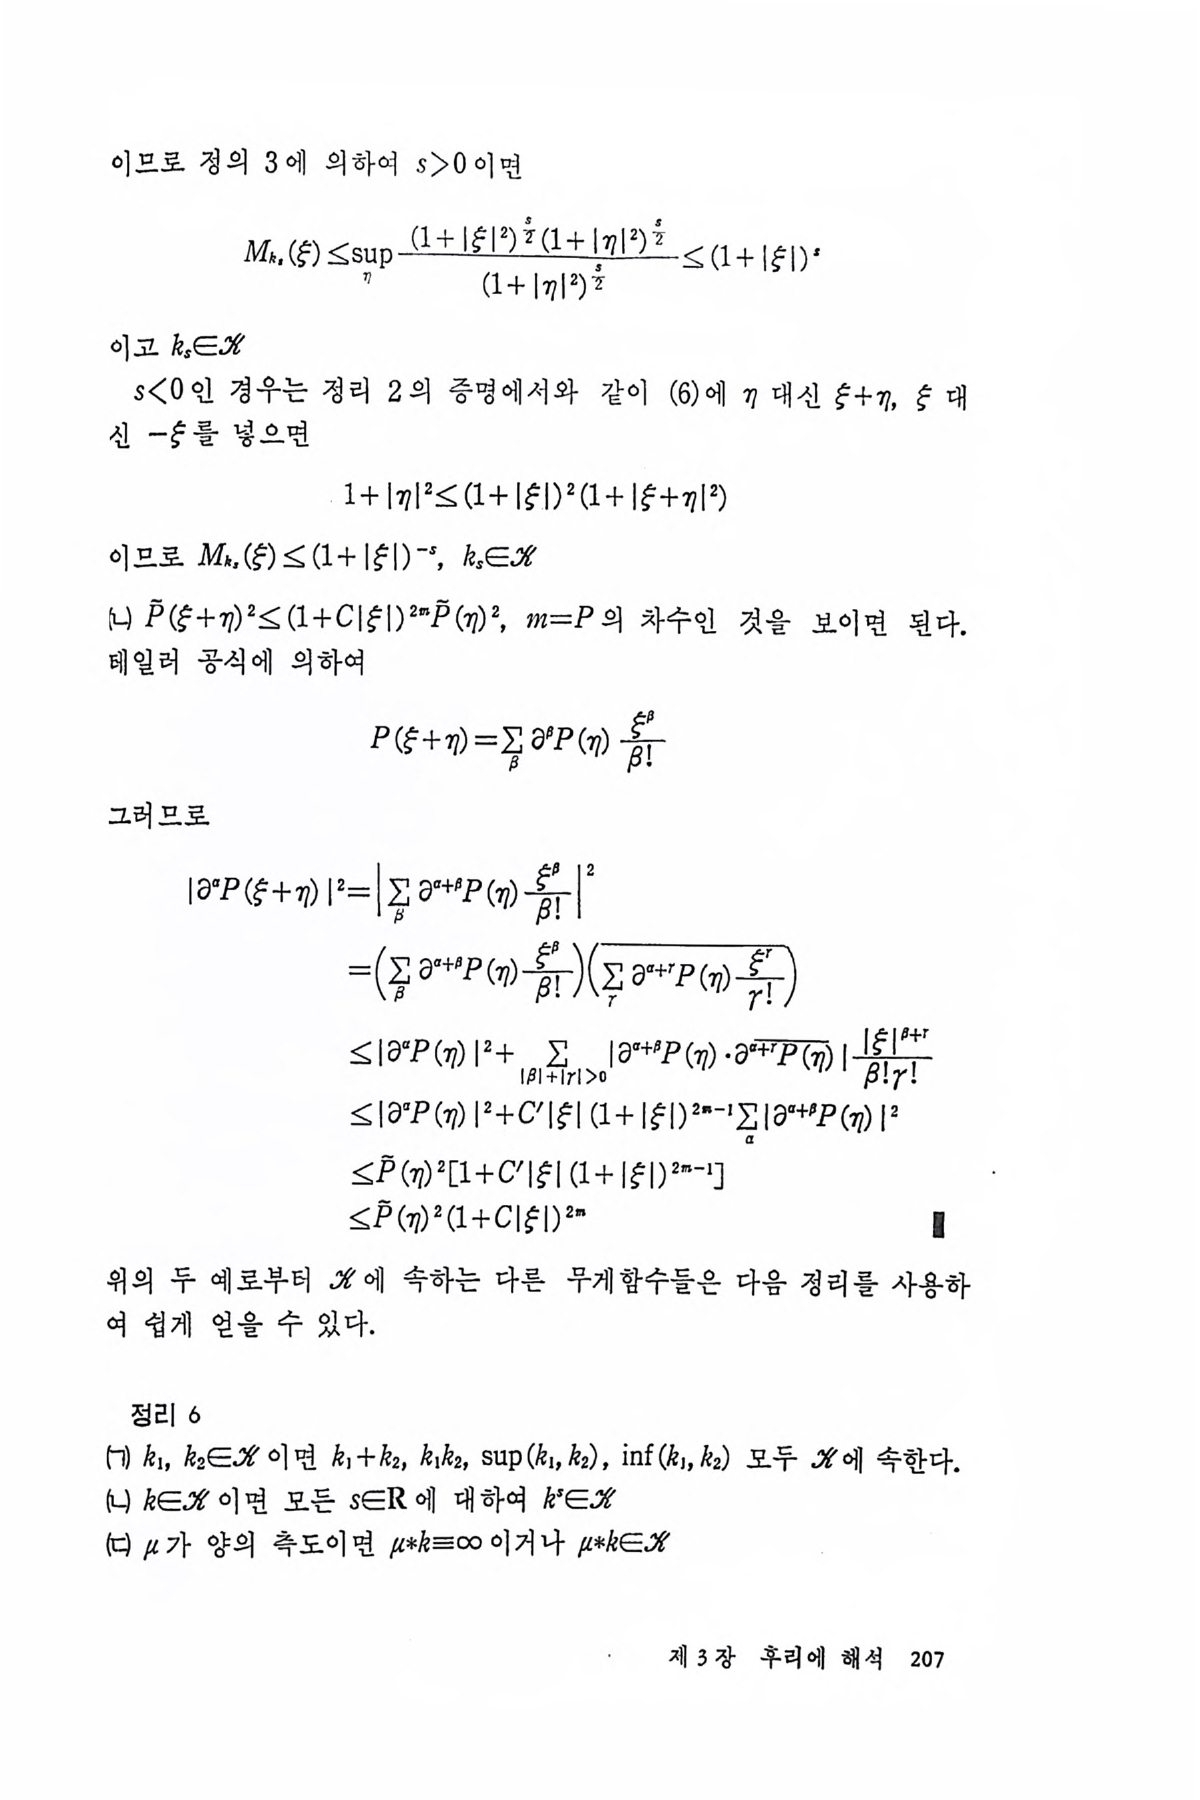 이므로 정의 3에 의하여 s>0이면
M_{k_s}(ξ)≤sup_η \frac{(1+|ξ|²)^{\frac{s}{2}}(1+|η|²)^{\frac{s}{2}}}{(1+|η|²)^{\frac{s}{2}}}≤(1+|ξ|)^s
이고 k_s∈𝒦
s<0인 경우는 정리 2의 증명에서와 같이 (6)에 η 대신 ξ+η, ξ 대
신 −ξ를 넣으면
1+|η|²≤(1+|ξ|)²(1+|ξ+η|²)
이므로 M_{k_s}(ξ)≤(1+|ξ|)^{-s}, k_s∈𝒦
(ㄴ) P̃(ξ+η)²≤(1+C|ξ|)^{2m}P̃(η)², m=P의 차수인 것을 보이면 된다.
테일러 공식에 의하여
P(ξ+η)=∑_β ∂^βP(η) \frac{ξ^β}{β!}
그러므로
|∂^αP(ξ+η)|²=|∑_β ∂^{α+β}P(η)\frac{ξ^β}{β!}|²
=(∑_β ∂^{α+β}P(η)\frac{ξ^β}{β!})(\overline{∑_γ ∂^{α+γ}P(η)\frac{ξ^γ}{γ!}})
≤|∂^αP(η)|²+∑_{|β|+|γ|>0}|∂^{α+β}P(η)·∂\overline{^{α+γ}P(η)}|\frac{|ξ|^{β+γ}}{β!γ!}
≤|∂^αP(η)|²+C′|ξ|(1+|ξ|)^{2m-1}∑_α|∂^{α+β}P(η)|²
≤P̃(η)²[1+C′|ξ|(1+|ξ|)^{2m-1}]
≤P̃(η)²(1+C|ξ|)^{2m} ▮
위의 두 예로부터 𝒦에 속하는 다른 무게함수들은 다음 정리를 사용하
여 쉽게 얻을 수 있다.
정리 6
(ㄱ) k₁, k₂∈𝒦이면 k₁+k₂, k₁k₂, sup(k₁, k₂), inf(k₁, k₂) 모두 𝒦에 속한다.
(ㄴ) k∈𝒦이면 모든 s∈R에 대하여 k^s∈𝒦
(ㄷ) μ가 양의 측도이면 μ*k≡∞이거나 μ*k∈𝒦
제 3 장 후리에 해석 207